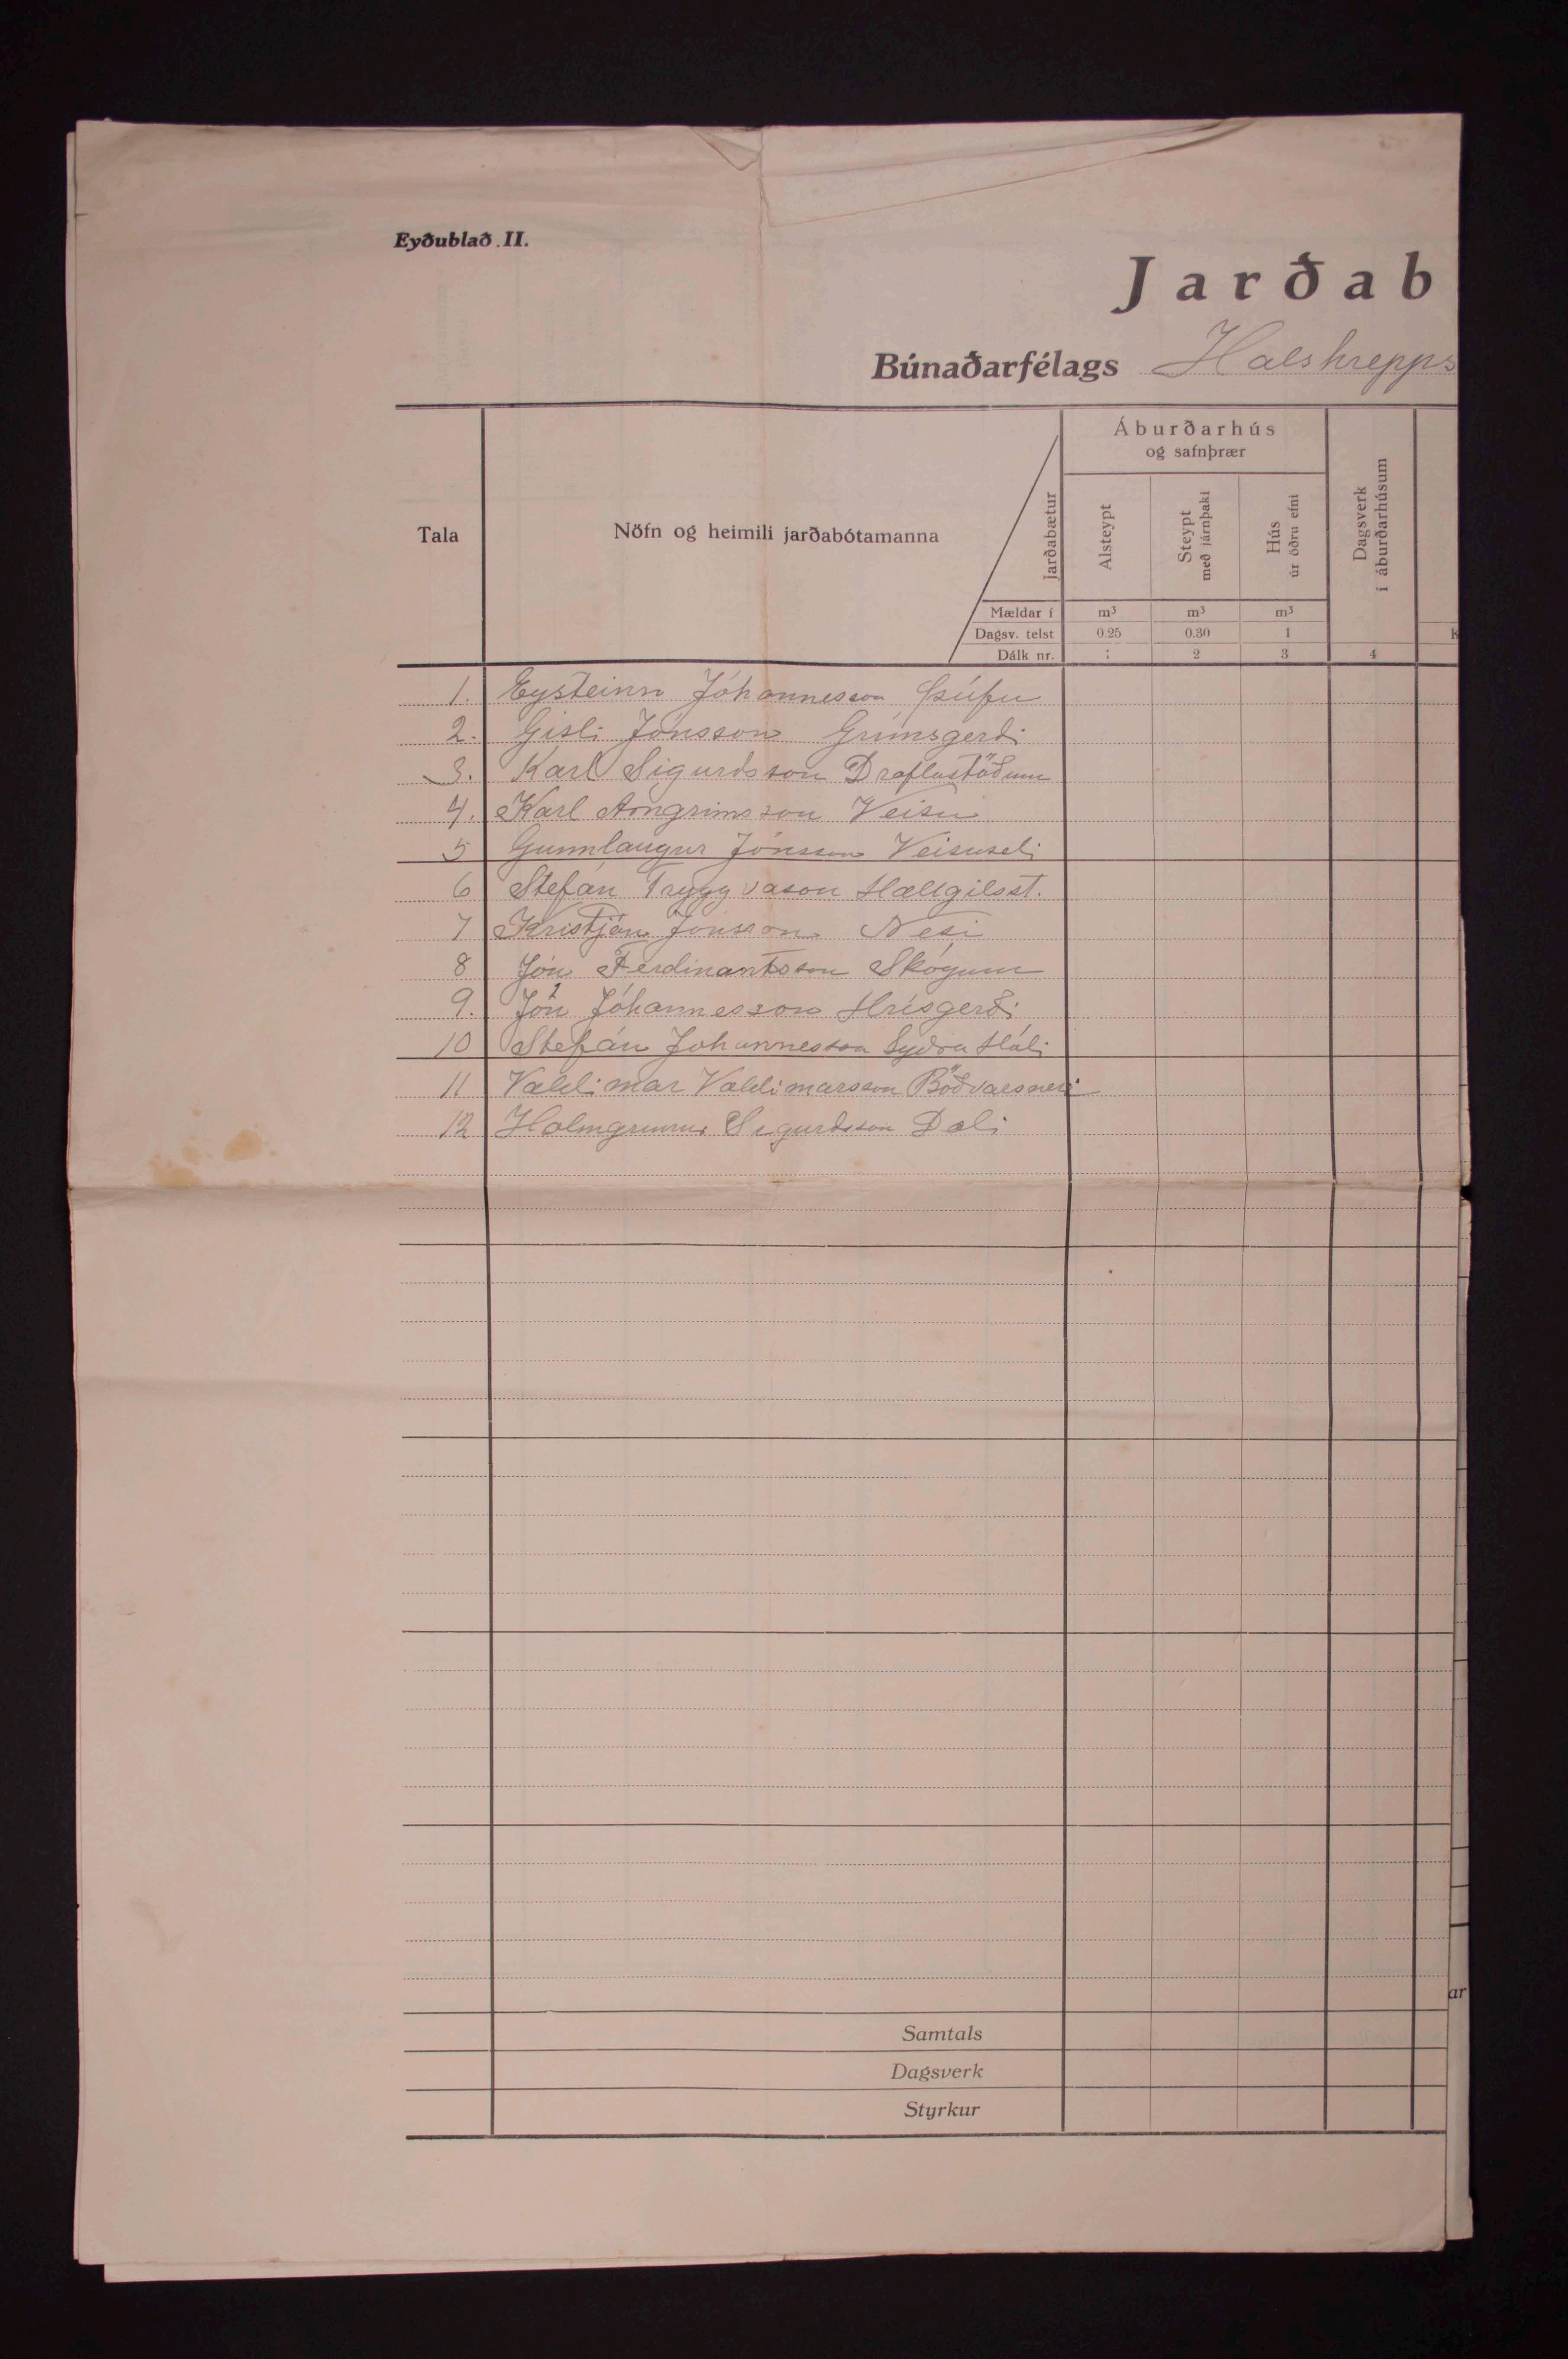 Eyðublað II.
Jarðab
Búnaðarfélags Halshrepps
Tala
Nöfn og heimili jarðabótamanna
Jarðabætur
Mældar í
Dagsv. telst
Dálk nr.
Áburðarhús
og safnþrær
Alsteypt
Steypt
með járnþaki
Hús
úr öðru efni
Dagsverk
í áburðarhúsum
m³ m³ m³
0.25 0.30 1 K
1 2 3 4
1. Eysteinn Jóhannesson Þúfu
2. Gisli Jónsson Grímsgerði
3. Karl Sigurdsson Draflastöðum
4. Karl Arngrimsson Veisu
5 Gunnlaugur Jónsson Veisuseli
6 Stefán Tryggvason Hallgilsst.
7 Kristján Jónsson Nesi
8 Jón Ferdinantsson Skógum
9. Jón Jóhannesson Hrísgerði
10 Stefán Johannesson Syðra Hóli
11 Valdimar Valdimarsson Böðvarsnesi
12 Holmgrimur Sigurdsson Dali
ar
Samtals
Dagsverk
Styrkur